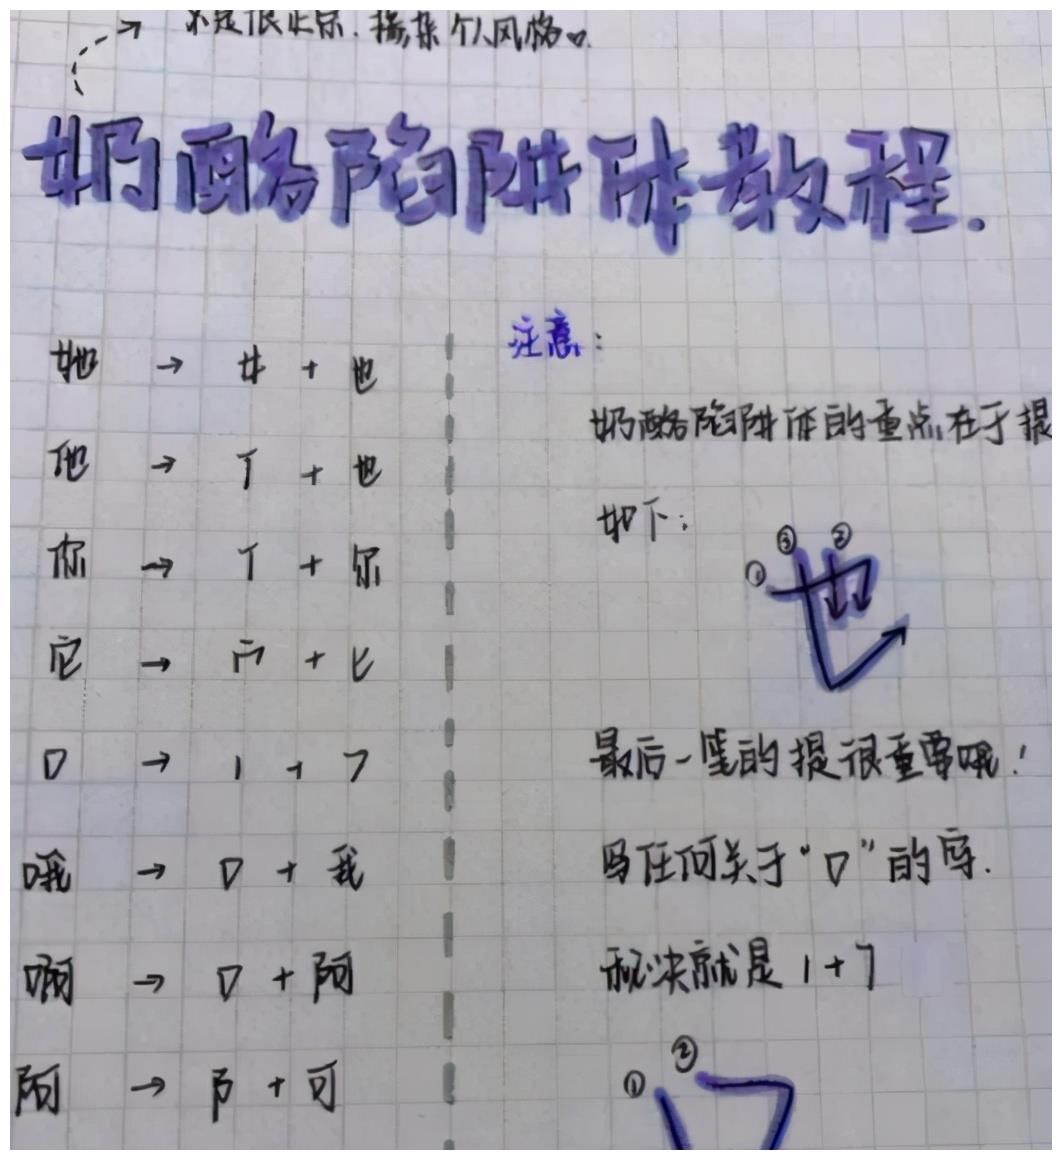 不是很正宗.掺杂个人风格
奶酪陷阱体教程.
她 → 女 + 也
他 → 亻 + 也
你 → 亻 + 尔
它 → 宀 + 匕
口 → 1 + 7
哦 → 口 + 我
啊 → 口 + 阿
阿 → 阝 + 可
注意:
奶酪陷阱体的重点在于提
如下:
① ③ ②
也
最后一笔的提很重要哦!
写任何关于“口”的字.
秘决就是 1+7
① ②